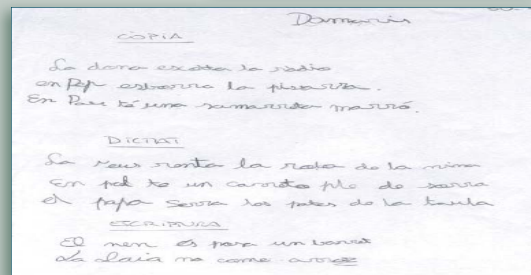 Damaris
CÒPIA
La dona escolta la ràdio
en Pep esborra la pissarra.
En Pau té una samarreta marró.
DICTAT
La neus renta la roda de la nina
En pol te un carreto ple de sorra
el papa serra les potes de la taula
ESCRIPTURA
El nen es posa un barret
La Laia no come arros